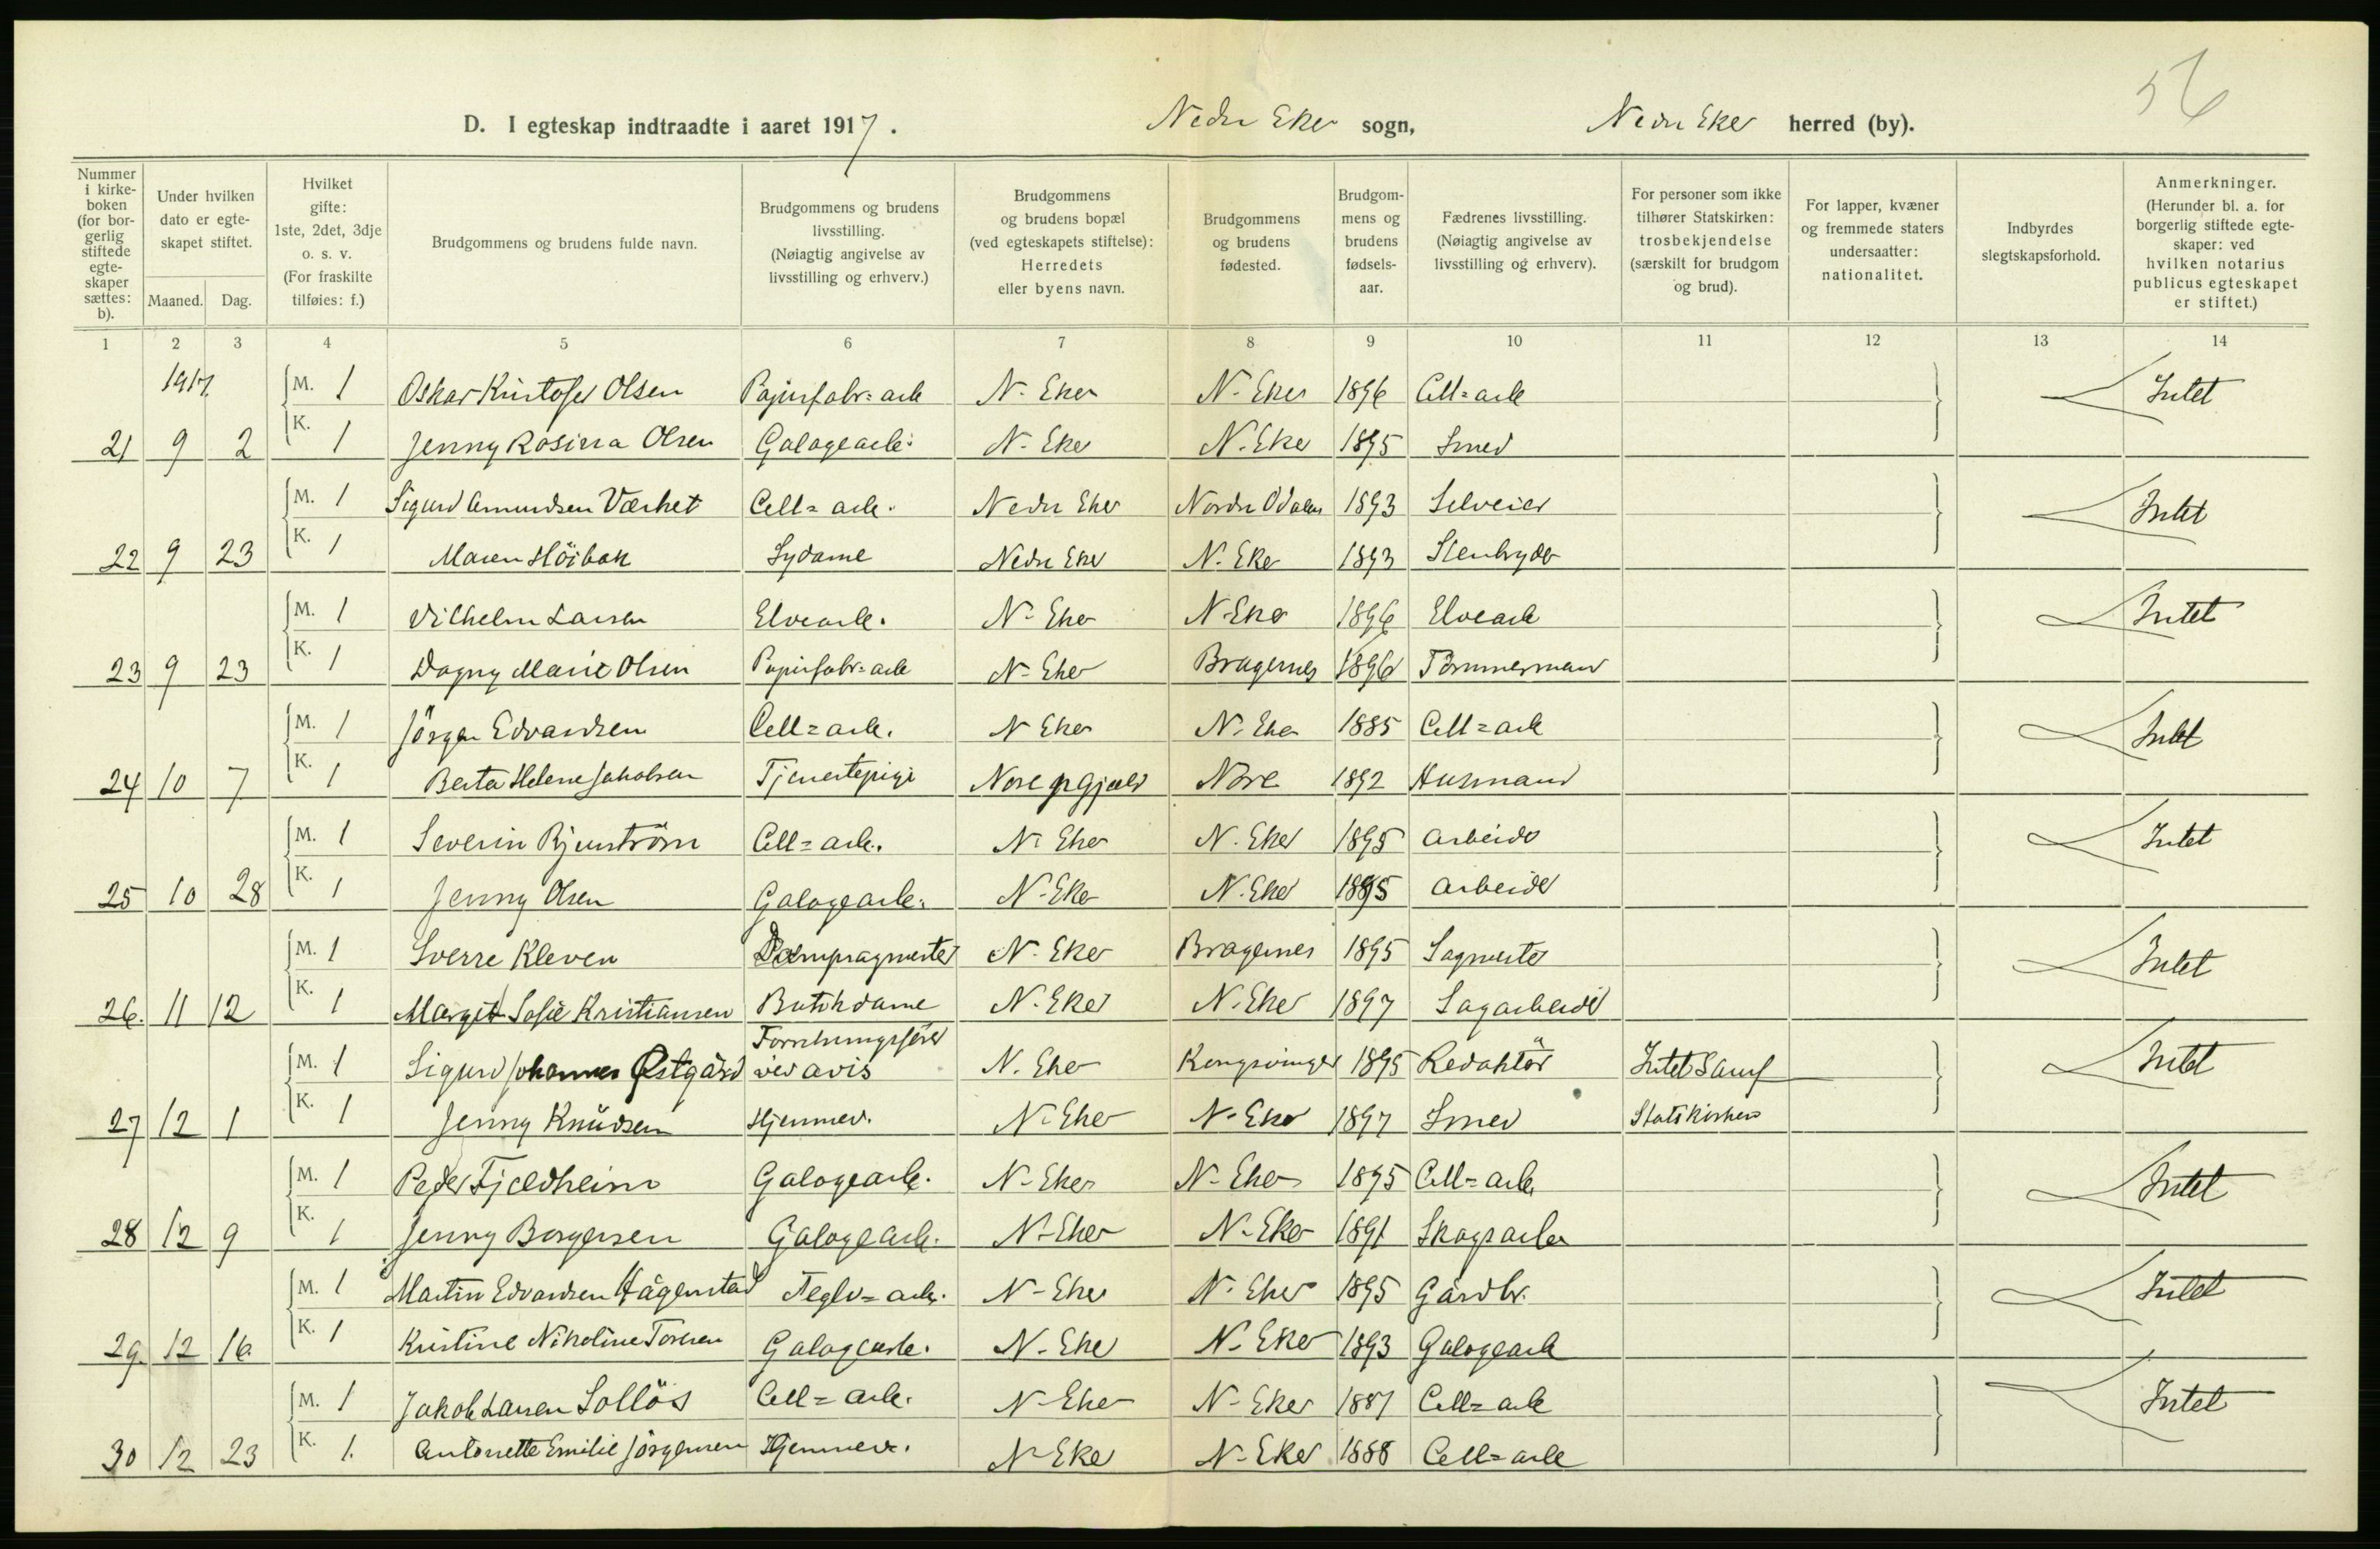 56
D. I egteskap indtraadte i aaret 1917. Nedre Eker sogn, Nedre Eker herred (by).
Nummer i kirke-boken (for bor-gerlig stiftede egte-skaper sættes: b).
Under hvilken dato er egte-skapet stiftet.
Maaned. Dag.
Hvilket gifte: 1ste, 2det, 3dje o. s. v. (For fraskilte tilføies: f.)
Brudgommens og brudens fulde navn.
Brudgommens og brudens livsstilling. (Nøiagtig angivelse av livsstilling og erhverv.)
Brudgommens og brudens bopæl (ved egteskapets stiftelse): Herredets eller byens navn.
Brudgommens og brudens fødested.
Brudgom-mens og brudens fødsels-aar.
Fædrenes livsstilling. (Nøiagtig angivelse av livsstilling og erhverv).
For personer som ikke tilhører Statskirken: trosbekjendelse (særskilt for brudgom og brud).
For lapper, kvæner og fremmede staters undersaatter: nationalitet.
Indbyrdes slegtskapsforhold.
Anmerkninger. (Herunder bl. a. for borgerlig stiftede egte-skaper: ved hvilken notarius publicus egteskapet er stiftet.)
1 2 3 4 5 6 7 8 9 10 11 12 13 14
1917. M. 1 Oskar Kristofer Olsen Papirfabr=arb N. Eker N. Eker 1896 Cell=arb Intet
21 9 2 K. 1 Jenny Rosina Olsen Galogearb. N. Eker N. Eker 1895 Smed
M. 1 Sigurd Amundsen Værhet Cell=arb. Nedre Eker Nordre Odalen 1893 Selveier Intet
22 9 23 K. 1 Maren Höibak Sydame Nedre Eker N. Eker 1893 Stenbryder
M. 1 Vilhelm Larsen Elvearb. N. Eker N. Eker 1896 Elvearb Intet
23 9 23 K. 1 Dagny Marie Olsen Papirfabr=arb N. Eker Bragernes 1896 Tömmermand
M. 1 Jörgen Edvardsen Cell=arb. N Eker N. Eker 1885 Cell=arb Intet
24 10 7 K. 1 Berta Helene Jakobsen Tjenestepige Nore prgjæld Nore 1892 Husmand
M. 1 Severin Bjernström Cell=arb. N. Eker N. Eker 1895 Arbeider Intet
25 10 28 K. 1 Jenny Olsen Galogearb. N. Eker N. Eker 1895 Arbeider
M. 1 Sverre Kleven Dampsagmester N. Eker Bragernes 1895 Sagmester Intet
26. 11 12 K. 1 Margit Sofie Kristiansen Butikdame N. Eker N. Eker 1897 Sagarbeider
M. 1 Sigurd Johannes Østgård Forretningsförer ved avis N. Eker Kongsvinger 1895 Redaktör Intet Samf Intet
27 12 1 K. 1 Jenny Knudsen Hjemmev. N. Eker N. Eker 1897 Smed Statskirken
M. 1 Peder Fjeldheim Galogearb. N. Eker N. Eker 1895 Cell=arb. Intet
28 12 9 K. 1 Jenny Borgersen Galogearb. N. Eker N. Eker 1891 Skogsarb
M. 1 Martin Edvardsen Hågenstad Teglv=arb. N. Eker N. Eker 1895 Gårdbr. Intet
29. 12 16. K. 1 Kristine Nikoline Toresen Galogearb. N. Eker N. Eker 1893 Galogearb
M. 1 Jakob Larsen Solløs Cell=arb. N. Eker N. Eker 1887 Cell=arb Intet
30 12 23 K. 1. Antonette Emilie Jörgensen Hjemmev. N. Eker N. Eker 1888 Cell=arb